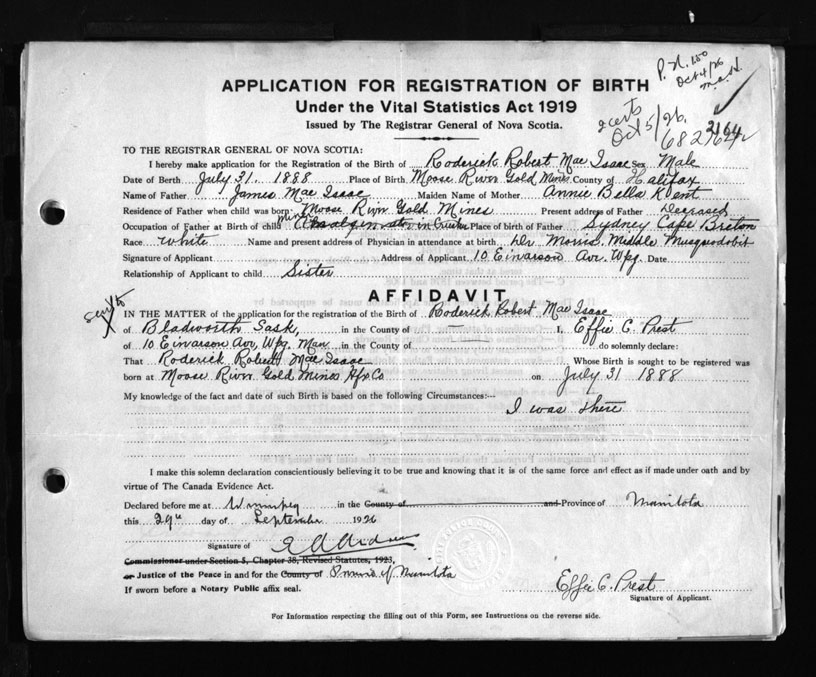 P.N. 150
Oct 4/26
APPLICATION FOR REGISTRATION OF BIRTH
Under the Vital Statistics Act 1919
Issued by The Registrar General of Nova Scotia.
2 certs
Oct 5/26.
TO THE REGISTRAR GENERAL OF NOVA SCOTIA:
I hereby make application for the Registration of the Birth of Roderick Robert Mac Isaac Sex Male
Date of Birth July 31. 1888 Place of Birth Moose River Gold Mines County of Halifax
Name of Father James Mac Isaac Maiden Name of Mother Annie Bella Kent
Residence of Father when child was born Moose River Gold Mines Present address of Father Deceased
Occupation of Father at Birth of child Amalgamator in Crusher Place of birth of Father Sydney Cape Breton
Race white Name and present address of Physician in attendance at birth Dr Morris Middle Musquodobit
Signature of Applicant Address of Applicant 10 Einarson Ave. Wpg. Date
Relationship of Applicant to child Sister
AFFIDAVIT
Sent to
IN THE MATTER of the application for the registration of the Birth of Roderick Robert Mac Isaac
of Bladworth Sask, in the County of — I, Effie C. Prest
of 10 Einarson Ave, Wpg. Man in the County of do solemnly declare:
That Roderick Robert Mac Isaac Whose Birth is sought to be registered was
born at Moose River Gold Mines Hfx Co on July 31 1888
My knowledge of the fact and date of such Birth is based on the following Circumstances:--
I was there
I make this solemn declaration conscientiously believing it to be true and knowing that it is of the same force and effect as if made under oath and by
virtue of The Canada Evidence Act.
Declared before me at Winnipeg in the County of and Province of Manitoba
this 29th day of September 1926
Signature of
Commissioner under Section 5, Chapter 38, Revised Statutes, 1923,
or Justice of the Peace in and for the County of Province of Manitoba
If sworn before a Notary Public affix seal.
Effie C. Prest
Signature of Applicant.
For Information respecting the filling out of this Form, see Instructions on the reverse side.